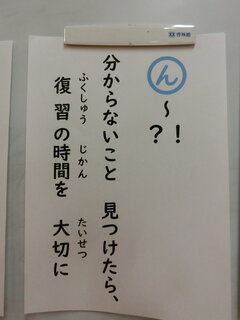 ん～?!
分からないこと 見つけたら、
復習の時間を 大切に
ふくしゅう じかん たいせつ